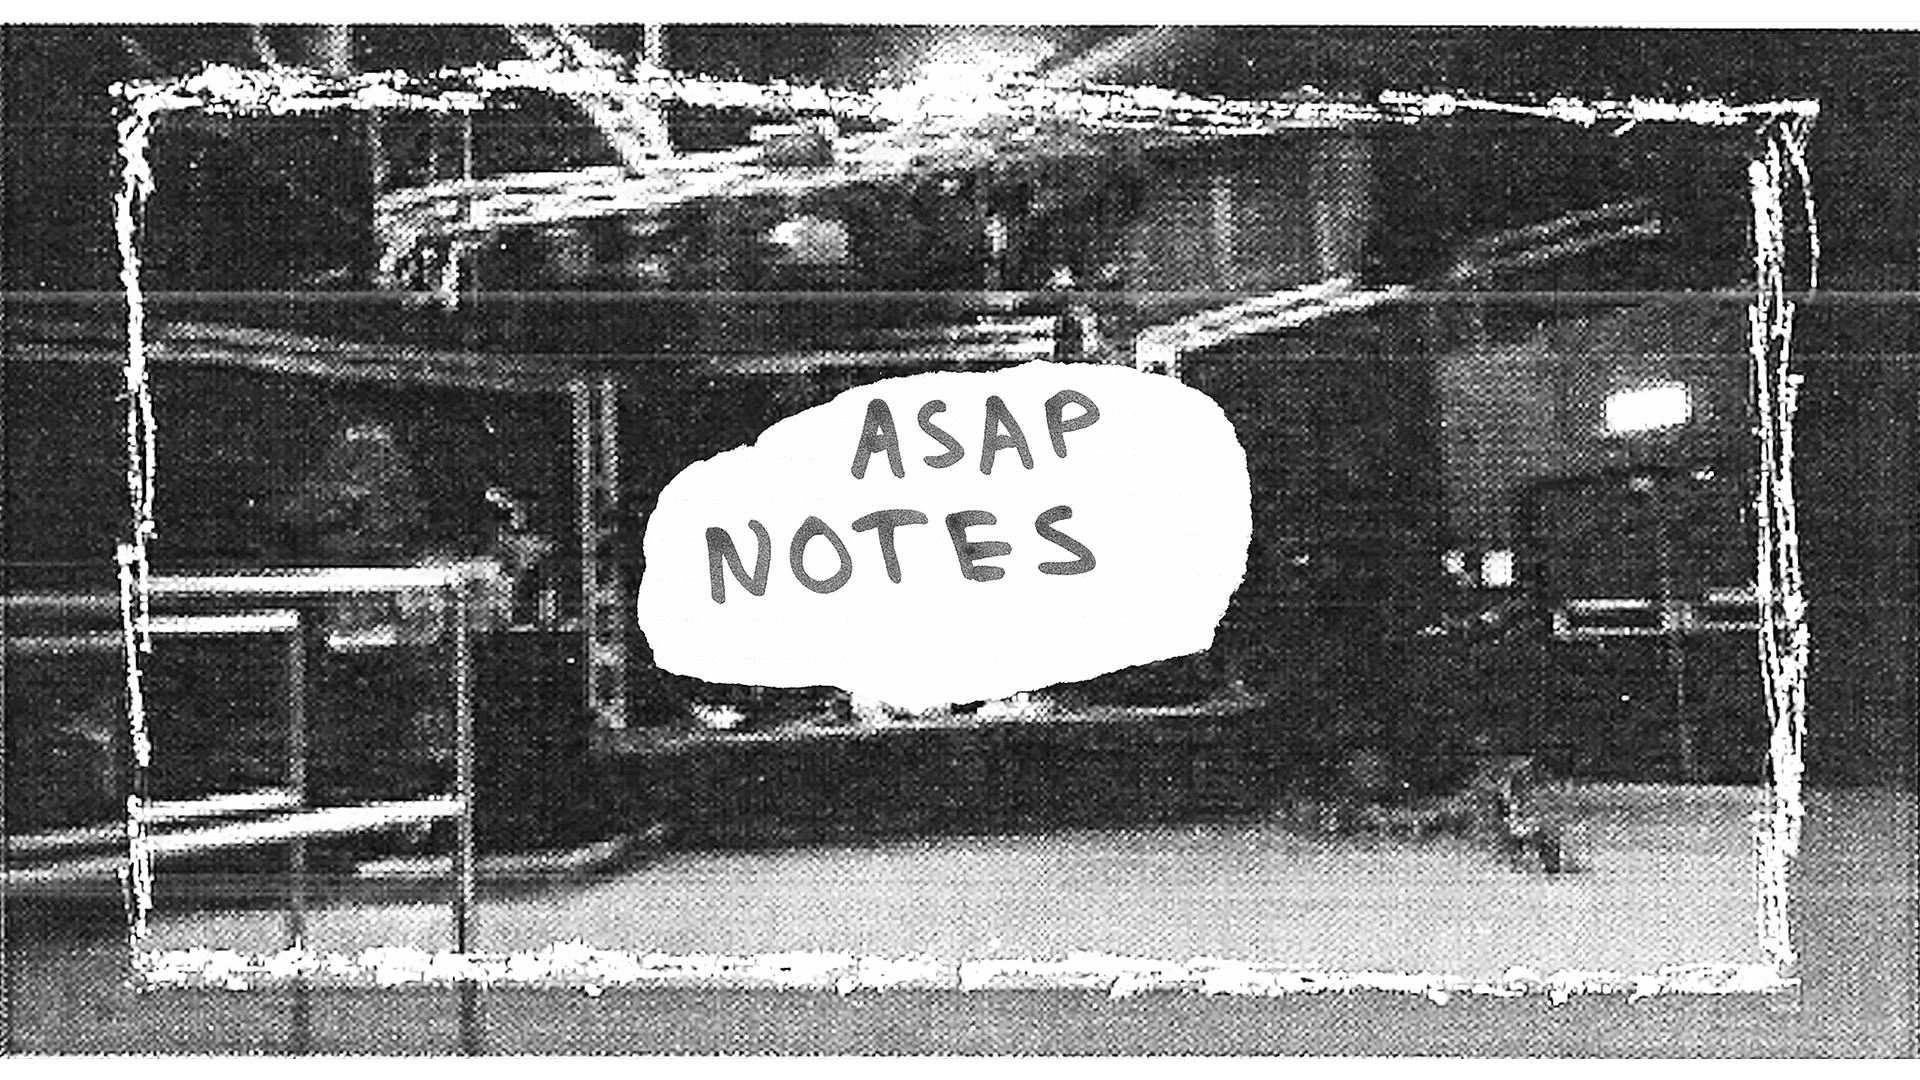 ASAP
NOTES